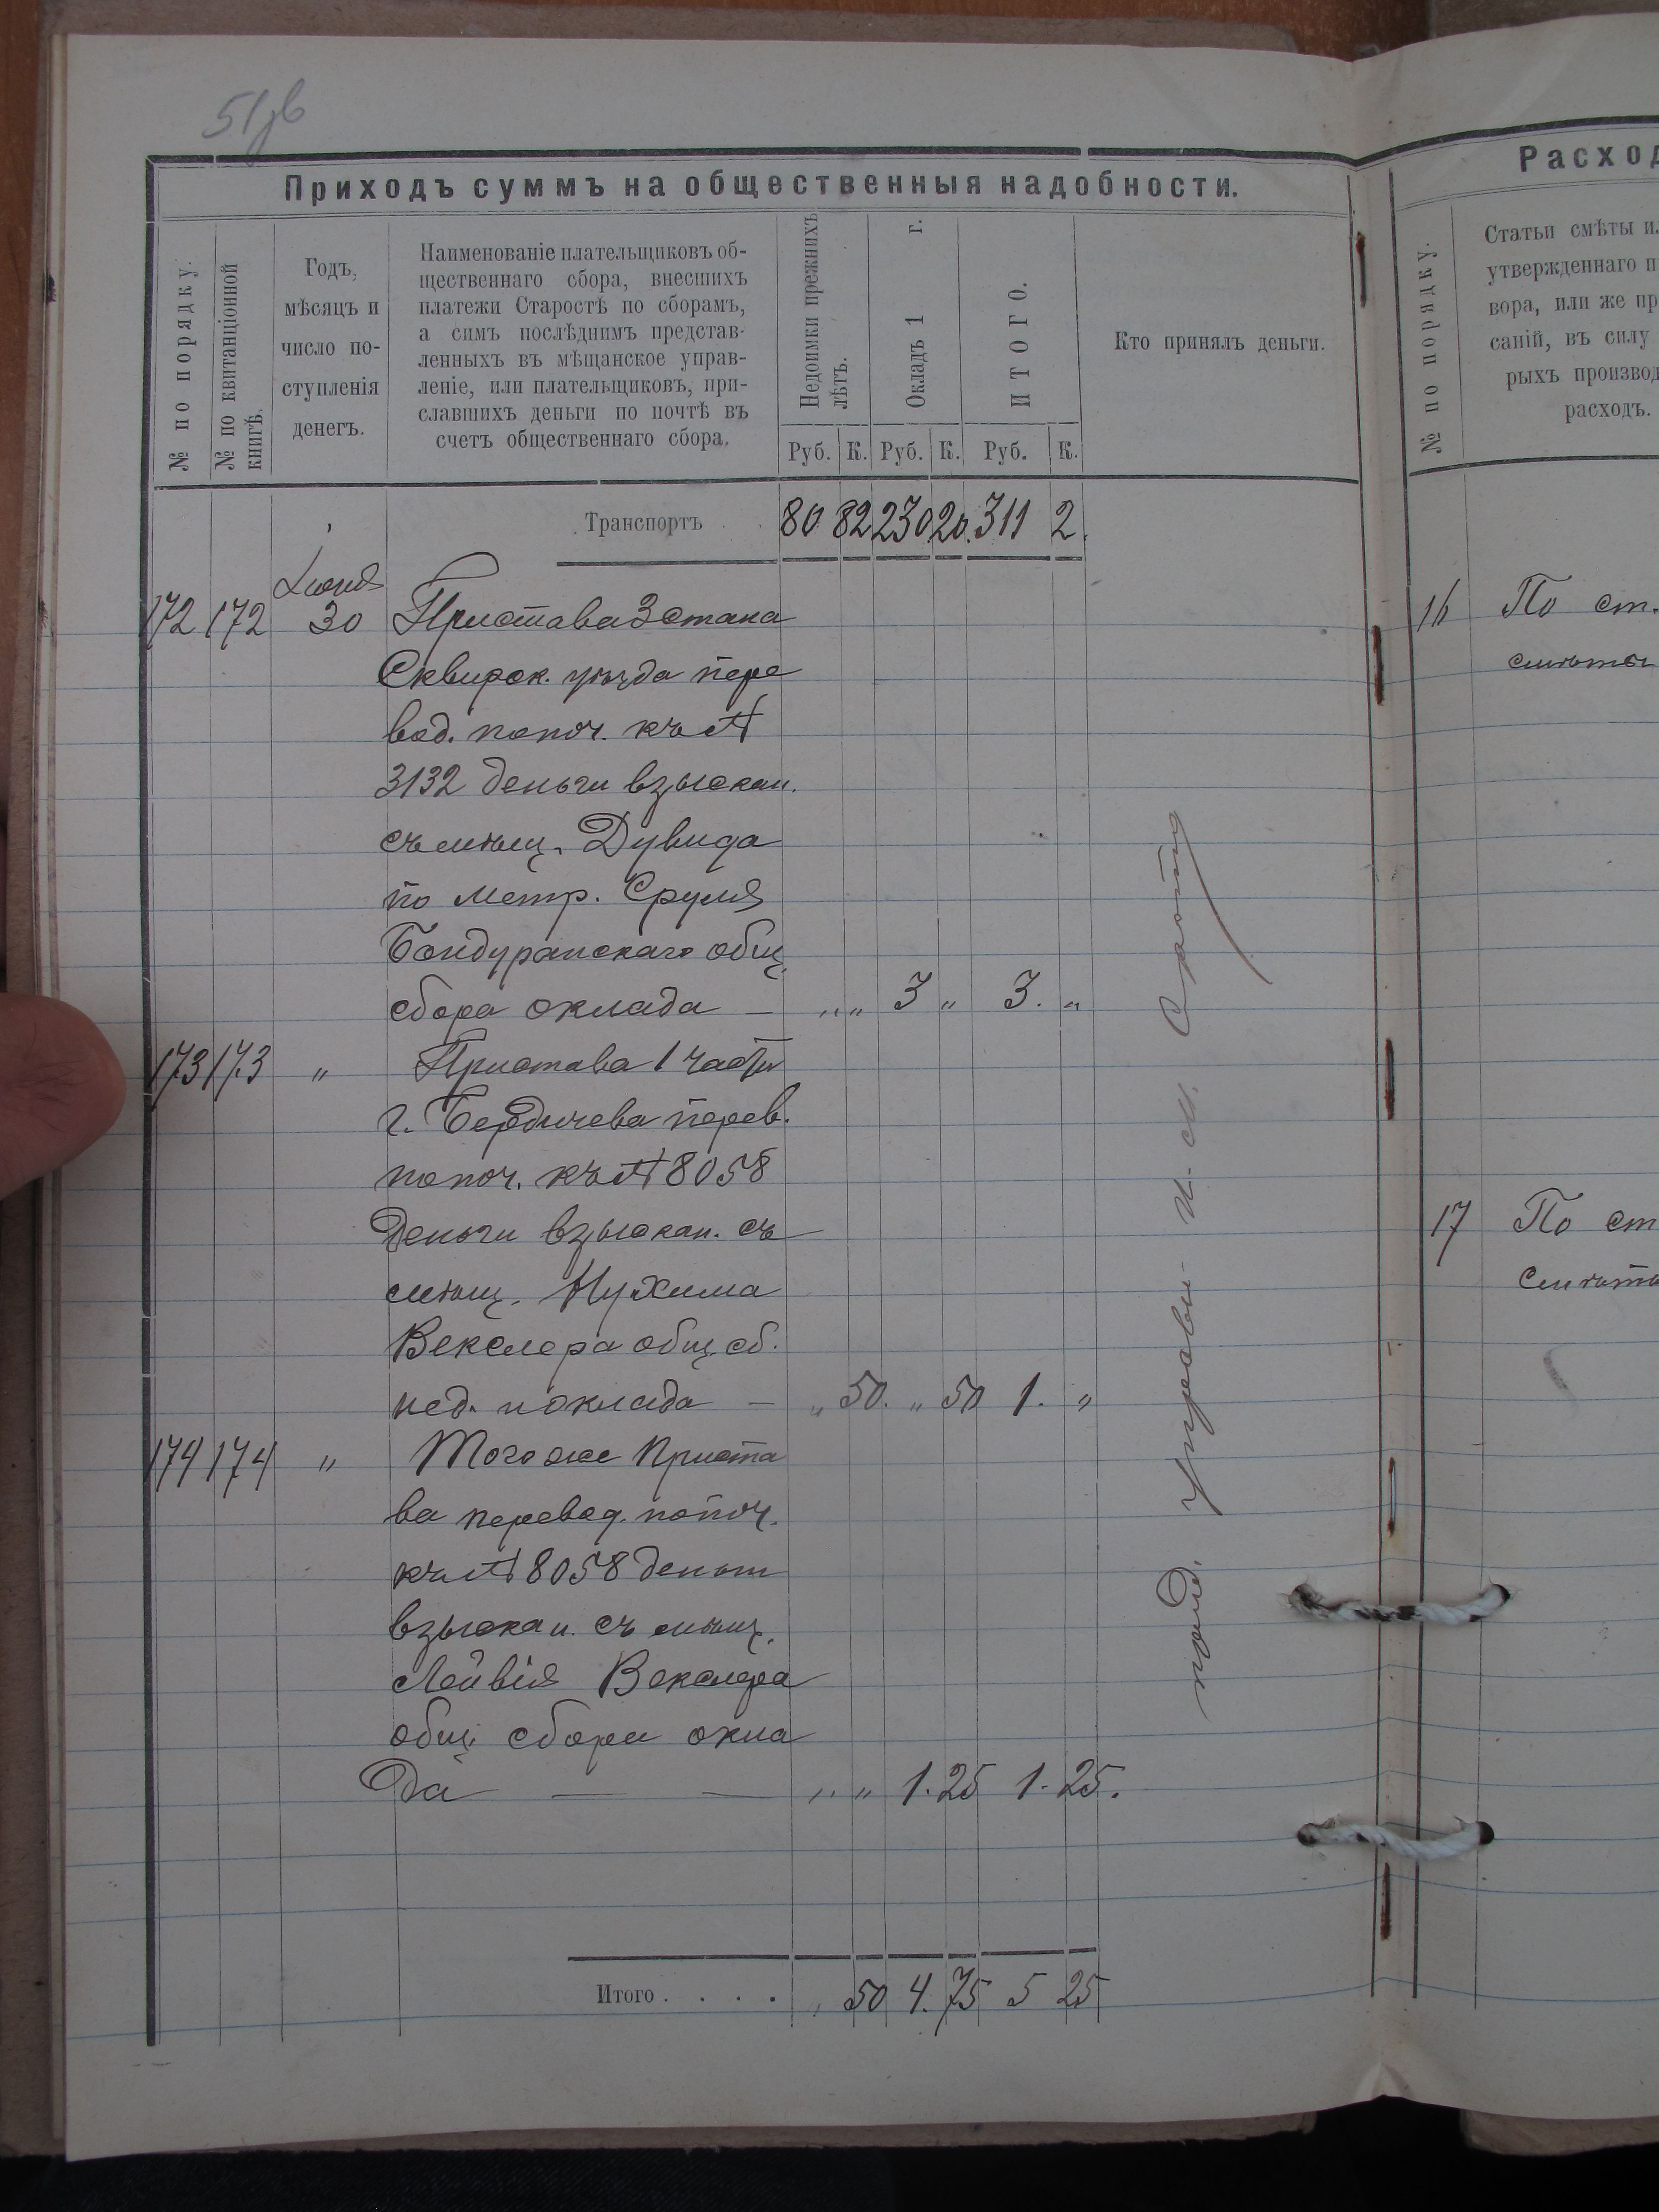 51зв
Приходъ суммъ на общественныя надобности.
№ по порядку.
№ по квитанціонной
книгѣ.
Годъ,
мѣсяцъ и
число по-
ступленія
денегъ.
Наименованіе плательщиковъ об-
щественнаго сбора, внесшихъ
платежи Старостѣ по сборамъ,
а симъ послѣднимъ представ-
ленныхъ въ мѣщанское управ-
леніе, или плательщиковъ, при-
славшихъ деньги по почтѣ въ
счетъ общественнаго сбора.
Недоимки прежнихъ
лѣтъ.
Окладъ 1 г.
ИТОГО.
Кто принялъ деньги.
Руб. К. Руб. К. Руб. К.
Транспортъ 80 82 230 20 311 2.
Іюня
172 172 30 Пристава 3 стана
Сквирск. уѣзда пере
вод. по поч. къ №
3132 деньги взыскан.
съ мѣщ. Дувида
по метр. Сруля
Бондуранскаго общ.
сбора оклада — „ „ 3 „ 3. „
173 173 „ Пристава 1 части
г. Бердичева перев.
по поч. къ № 8058
деньги взыскан. съ
мѣщ. Нухима
Векслера общ. сб.
нед. и оклада — „ 50. „ 50 1. „
174 174 „ Того же Приста
ва перевод. по поч.
къ № 8058 деньги
взыскан. съ мѣщ.
Лейвія Векслера
общ. сбора окла
да — — „ „ 1. 25 1. 25.
Итого . . . . „ 50 4. 75 5 25
управы
Расход
№ по порядку.
Статьи смѣты и
утвержденнаго п
вора, или же пр
саній, въ силу
рыхъ производ
расходъ.
16 По ст.
смѣты
17 По ст
смѣты